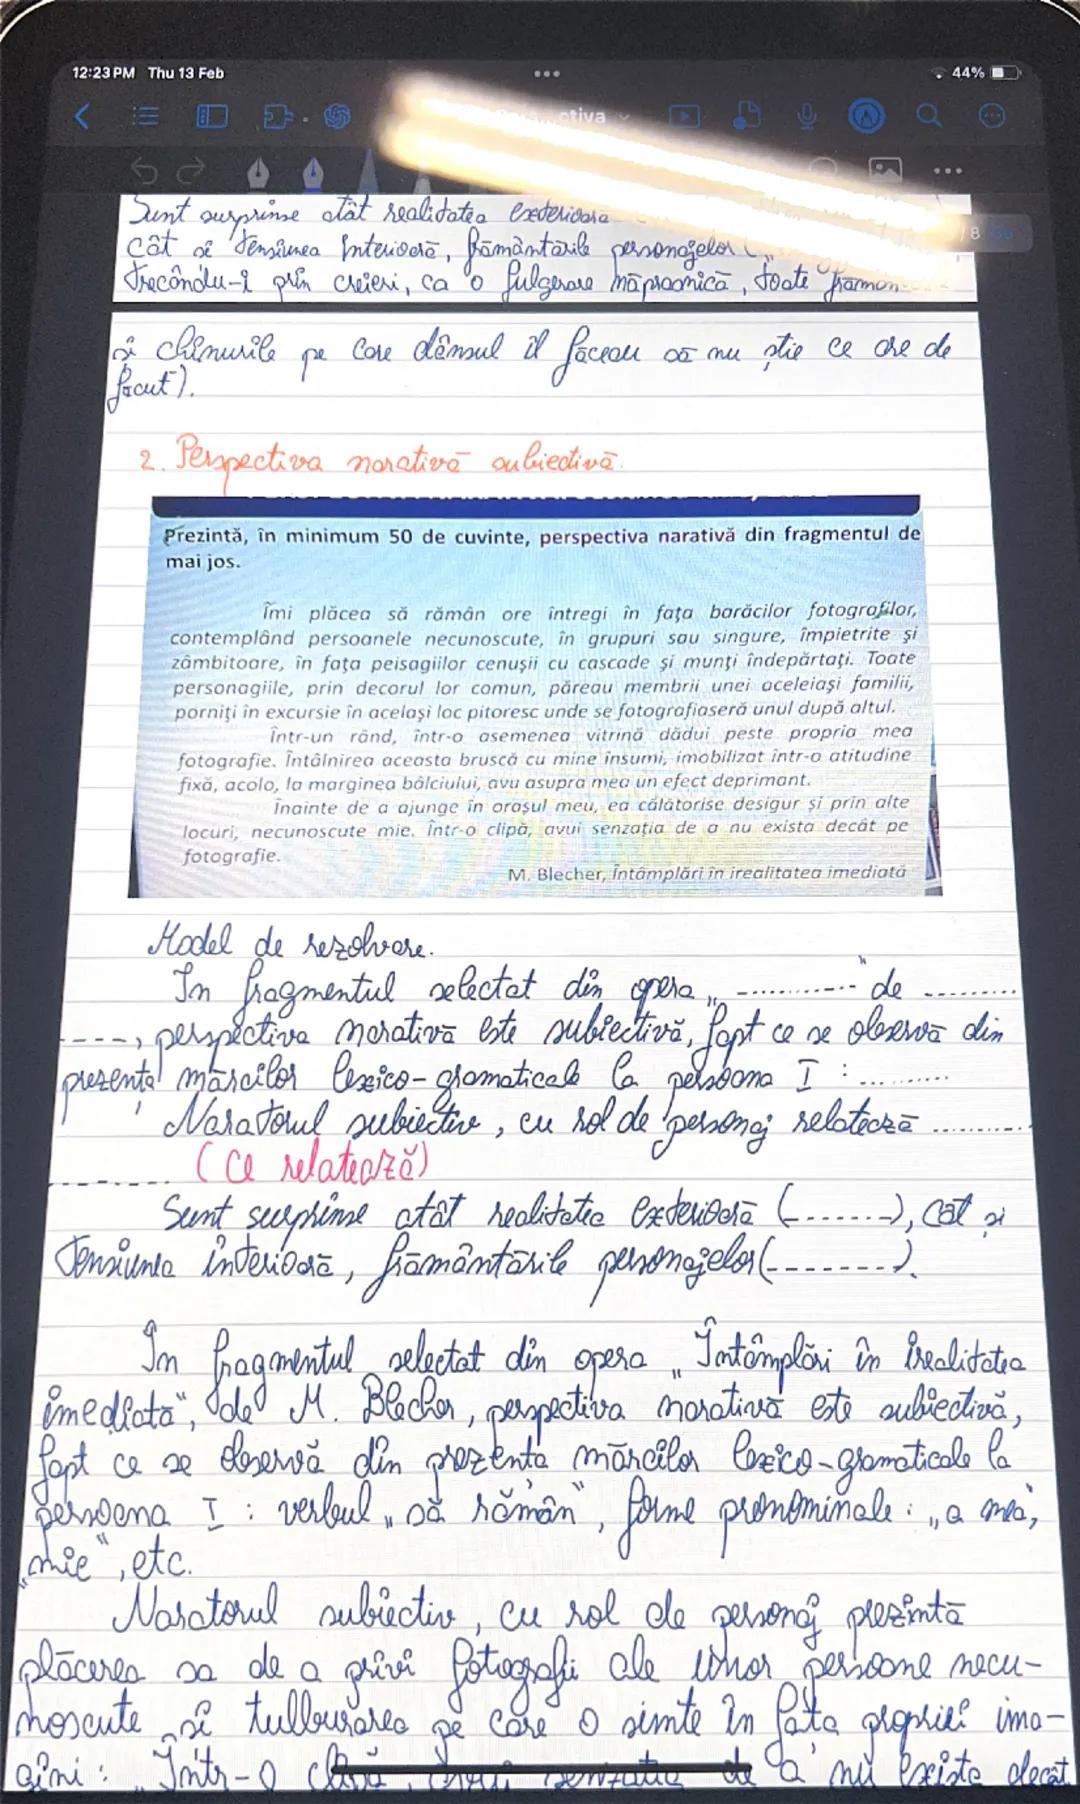 12:23 PM Thu 13 Feb
44%
ctiva
8
Sunt surprinse atât realitatea exterioară
cât și tensiunea interioară, frământările personajelor („
trecându-i prin creieri, ca o fulgerare năpraznică, toate frămân
și chinurile pe care dânsul îl făceau să nu știe ce are de
făcut").
2. Perspectiva narativă subiectivă.
Prezintă, în minimum 50 de cuvinte, perspectiva narativă din fragmentul de
mai jos.
Îmi plăcea să rămân ore întregi în fața barăcilor fotografilor,
contemplând persoanele necunoscute, în grupuri sau singure, împietrite și
zâmbitoare, în fața peisagiilor cenușii cu cascade și munți îndepărtați. Toate
personagiile, prin decorul lor comun, păreau membrii unei aceleiași familii,
porniți în excursie în același loc pitoresc unde se fotografiaseră unul după altul.
Într-un rând, într-o asemenea vitrină dădui peste propria mea
fotografie. Întâlnirea aceasta bruscă cu mine însumi, imobilizat într-o atitudine
fixă, acolo, la marginea bâlciului, avu asupra mea un efect deprimant.
Înainte de a ajunge în orașul meu, ea călătorise desigur și prin alte
locuri, necunoscute mie. Într-o clipă, avui senzația de a nu exista decât pe
fotografie.
M. Blecher, Întâmplări în irealitatea imediată
Model de rezolvare.
În fragmentul selectat din opera „ ............" de .........
----, perspectiva narativă este subiectivă, fapt ce se observă din
prezența mărcilor lexico-gramaticale la persoana I : ..........
Naratorul subiectiv, cu rol de personaj relatează ..........
......... (Ce relatează)
Sunt surprinse atât realitatea exterioară (-.......-), cât și
tensiunea interioară, frământările personajelor (--------).
În fragmentul selectat din opera „Întâmplări în irealitatea
imediată", de M. Blecher, perspectiva narativă este subiectivă,
fapt ce se observă din prezența mărcilor lexico-gramaticale la
persoana I : verbul „să rămân", forme pronominale : „a mea,
„mie", etc.
Naratorul subiectiv, cu rol de personaj prezintă
plăcerea sa de a privi fotografii ale unor persoane necu-
noscute și tulburarea pe care o simte în fața propriei ima-
gini: „Într-o clipă, avui senzația de a nu exista decât